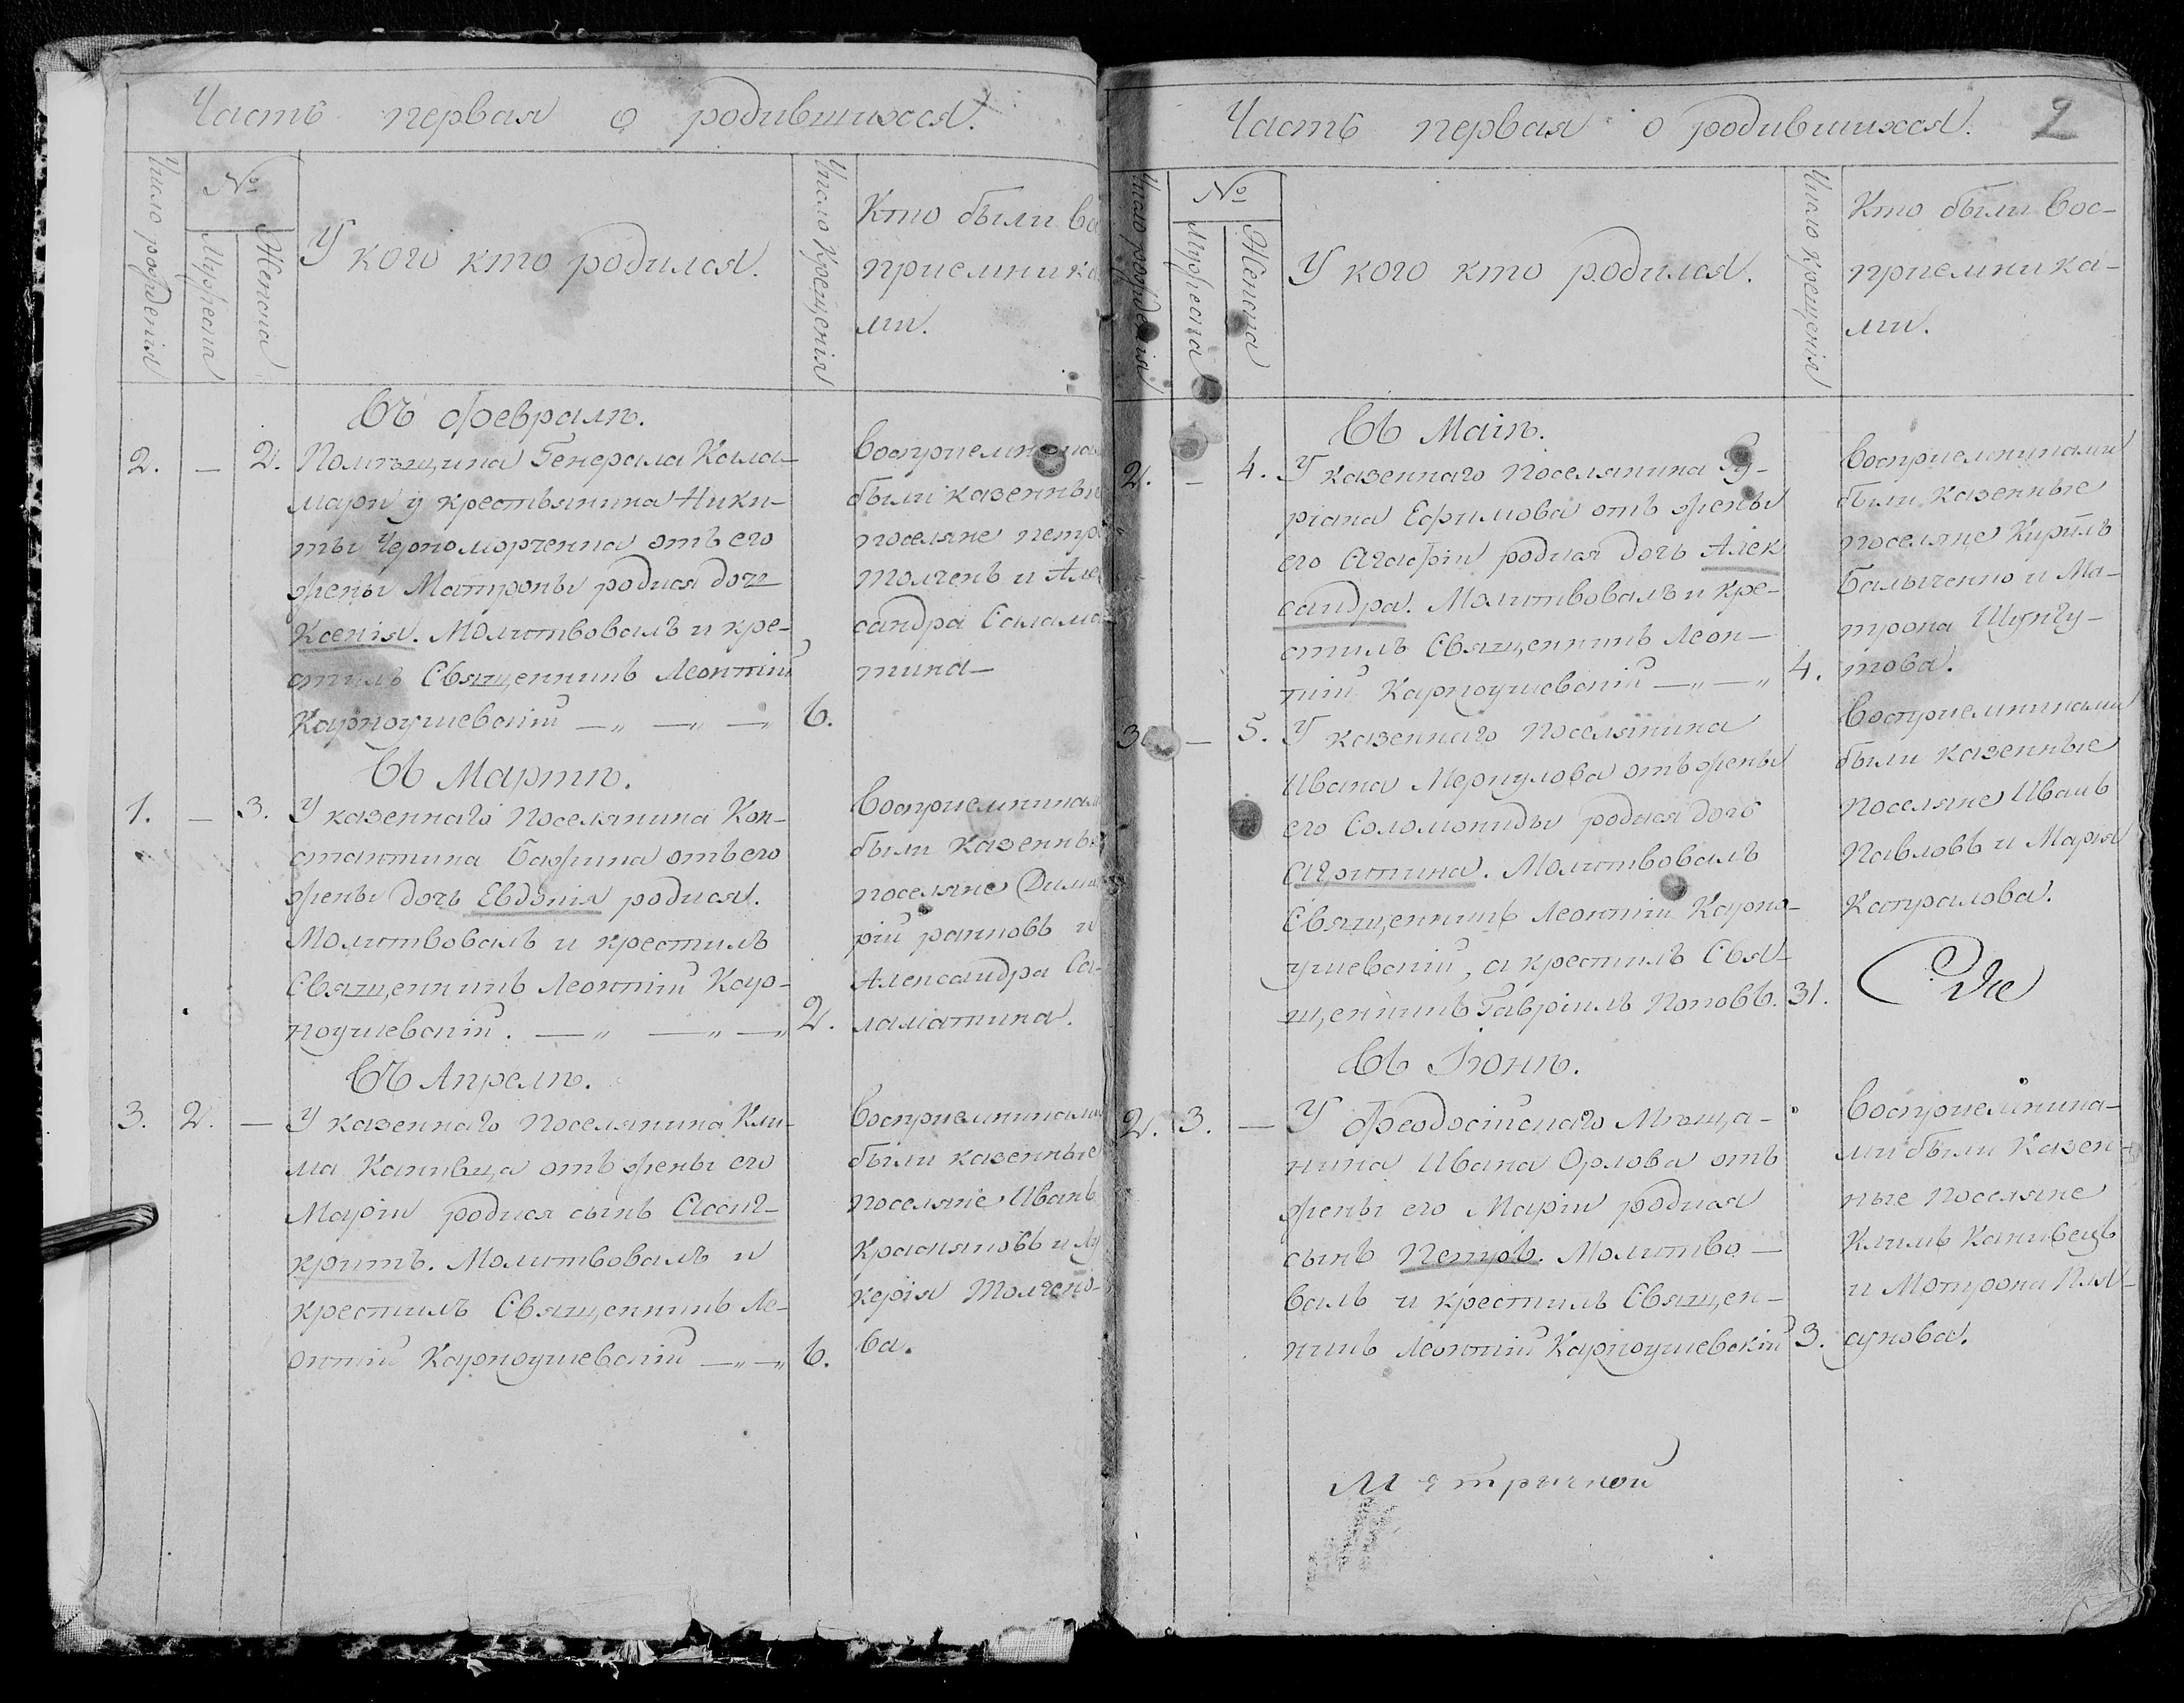 Часть первая о родившихся.
Число рожденія
№
Мужеска
Женска
У кого кто родился.
Число Крещенія
Кто были во
приемника
ми.
Въ Февралѣ.
2. — 2. Помѣщика Генерала Кала-
мари у крестьянина Ники-
ты Черноморченка отъ его
жены Матроны родися дочь
Ксенія. Молитвовалъ и кре-
стилъ Священникъ Леонтій
Карпоушевскій —„ —„ —„ 6.
Восприемникам
были казенныи
поселяне петръ
Толченъ и Але
сандра Салама
тина—
Въ Мартѣ.
1. — 3. У казеннаго Поселянина Кон-
стантина Бажина отъ его
жены дочь Евдокія родися.
Молитвовалъ и крестилъ
Священникъ Леонтій Карп-
поушевскій. —„ —„ —„ 2.
Восприемникам
были Казенны
поселяне Дими
рій и
Александра Са-
ламатина.
Въ Апрелѣ.
3. 2. — У казеннаго Поселянина Кли-
ма Канивца отъ жены его
Маріи родися сынъ Асинг-
критъ. Молитвовалъ и
крестилъ Священникъ Ле-
онтій Карпоушевскій —„—„ 6.
Восприемниками
были казенные
поселяне Иванъ
и Лу
керія Толчено-
ва.
Часть первая о родившихся. 2
Число рожденія
№
Мужеска
Женска
У кого кто родился.
Число крещенія
Кто были вос-
приемника-
ми.
Въ Маіѣ.
2. — 4. У казеннаго Поселянина Гу-
ріана Ефимова отъ жены
его Агафіи родися дочь Алек
сандра. Молитвовалъ и кре-
стилъ Священникъ Леон-
тій Карпоушевскій —„—„ 4.
Восприемниками
были казенные
поселяне Кирилъ
и Ма-
трона Шунгу-
това.
30 — 5. У казеннаго Поселянина
Ивана Меркулова отъ жены
его Соломониды родися дочь
Агрипина. Молитвовалъ
Священникъ Леонтій Карпо-
ушевскій, а крестилъ Свя-
щенникъ Гавріилъ Поповъ. 31.
Восприемниками
были казенные
Поселяне Иванъ
Павловъ и Марія
Капралова.
Въ Іюнѣ.
2. 3. — У Феодосійскаго Мѣща-
нина Ивана Орлова отъ
жены его Маріи родися
сынъ Петръ. Молитво—
валъ и крестилъ Священ-
никъ Леонтій Карпоушевскій 3.
Восприемника-
ми были Казен-
ные поселяне
Климъ Канивецъ
и Мотрона Пля-
сунова.
Метричной